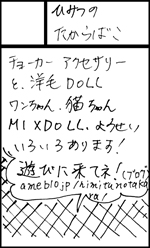 ひみつの
たからばこ
チョーカー アクセサリー
と、洋毛DOLL
ワンちゃん、猫ちゃん
MIXDOLL、ようせい
いろいろあります!
遊びに来てネ!(ブログ)
ameblo.jp/himitunotaka
ra/